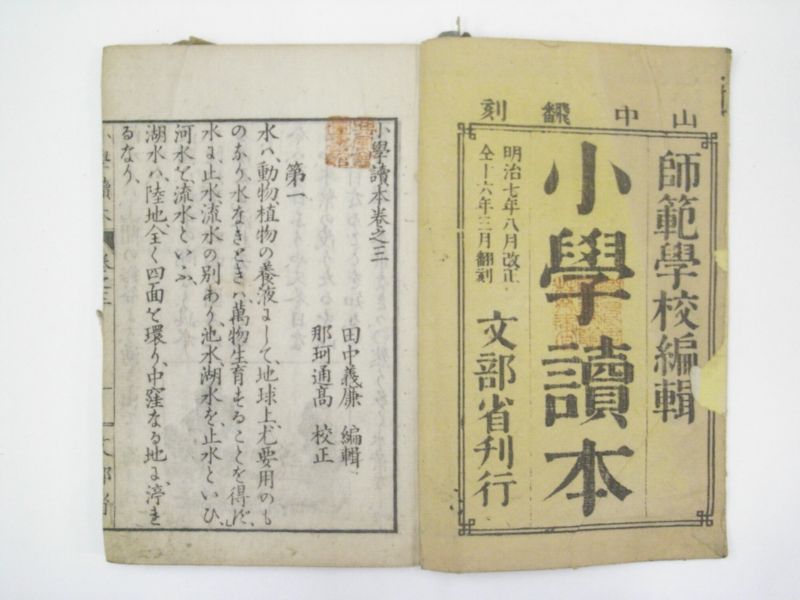 山中翻刻
師範學校編輯
小學讀本
明治七年八月改正
仝十六年三月翻刻
文部省刊行
小學讀本卷之三
田中義廉 編輯
那珂通高 校正
第一
水ハ、動物植物の養液にして、地球上、尤要用のも
のなり、水なきときハ、萬物生育することを得ず、
水に止水、流水の別あり、池水湖水を、止水といひ、
河水を流水といふ、
湖水ハ、陸地全く四面を環り、中窪なる地に、渟き
るなり、
小學讀本 卷之三